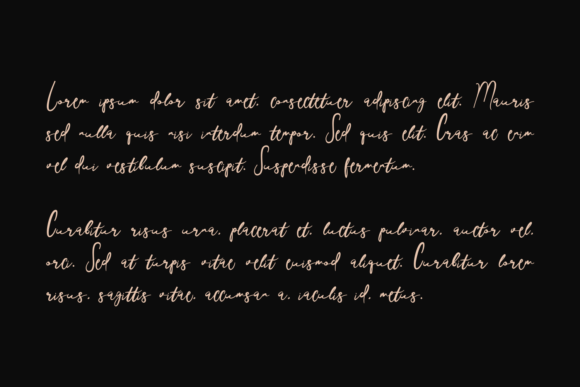 Lorem ipsum dolor sit amet, consectetuer adipiscing elit. Mauris
sed nulla quis nisi interdum tempor. Sed quis elit. Cras ac enim
vel dui vestibulum suscipit. Suspendisse fermentum.
Curabitur risus urna, placerat et, luctus pulvinar, auctor vel,
orci. Sed at turpis vitae velit euismod aliquet. Curabitur lorem
risus, sagittis vitae, accumsan a, iaculis id, metus.